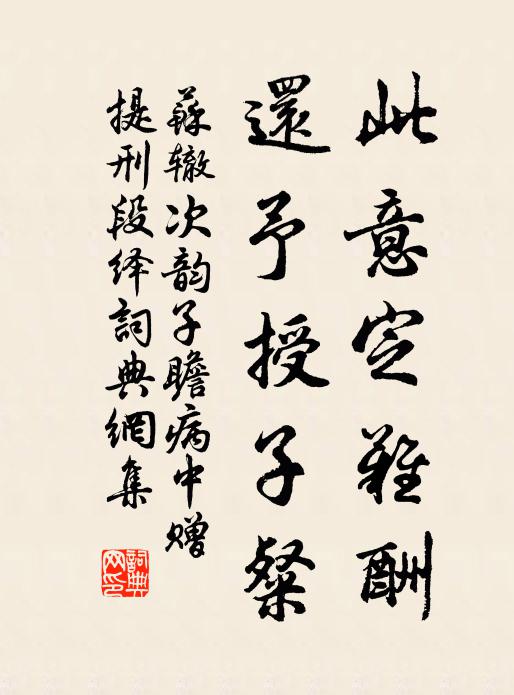 此意定難酬
還予授子粲
蘇辙次韵子瞻病中赠
提刑段绎詞典網集
詞典
网印